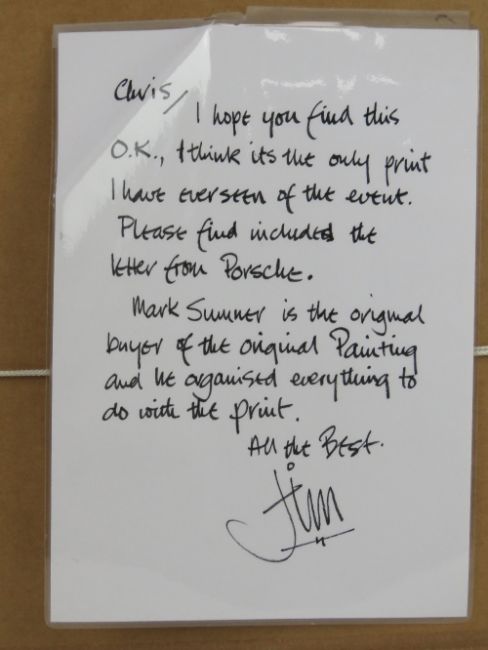 Chris,
I hope you find this
O.K., I think its the only print
I have ever seen of the event.
Please find included the
letter from Porsche.
Mark Sumner is the original
buyer of the original Painting
and he organised everything to
do with the print.
All the Best.
Jim